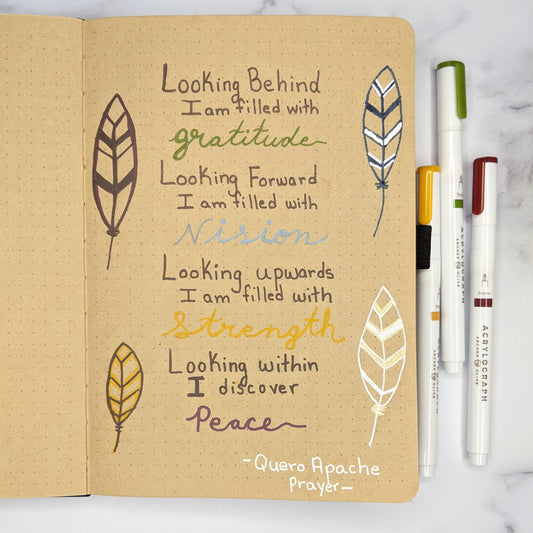 Looking Behind
I am filled with
gratitude
Looking Forward
I am filled with
Vision
Looking upwards
I am filled with
Strength
Looking within
I discover
Peace
-Quero Apache
Prayer-
ACRYLOGRAPH
ARCHER & OLIVE
ACRYLOGRAPH
ARCHER & OLIVE
ACRYLOGRAPH
ARCHER & OLIVE